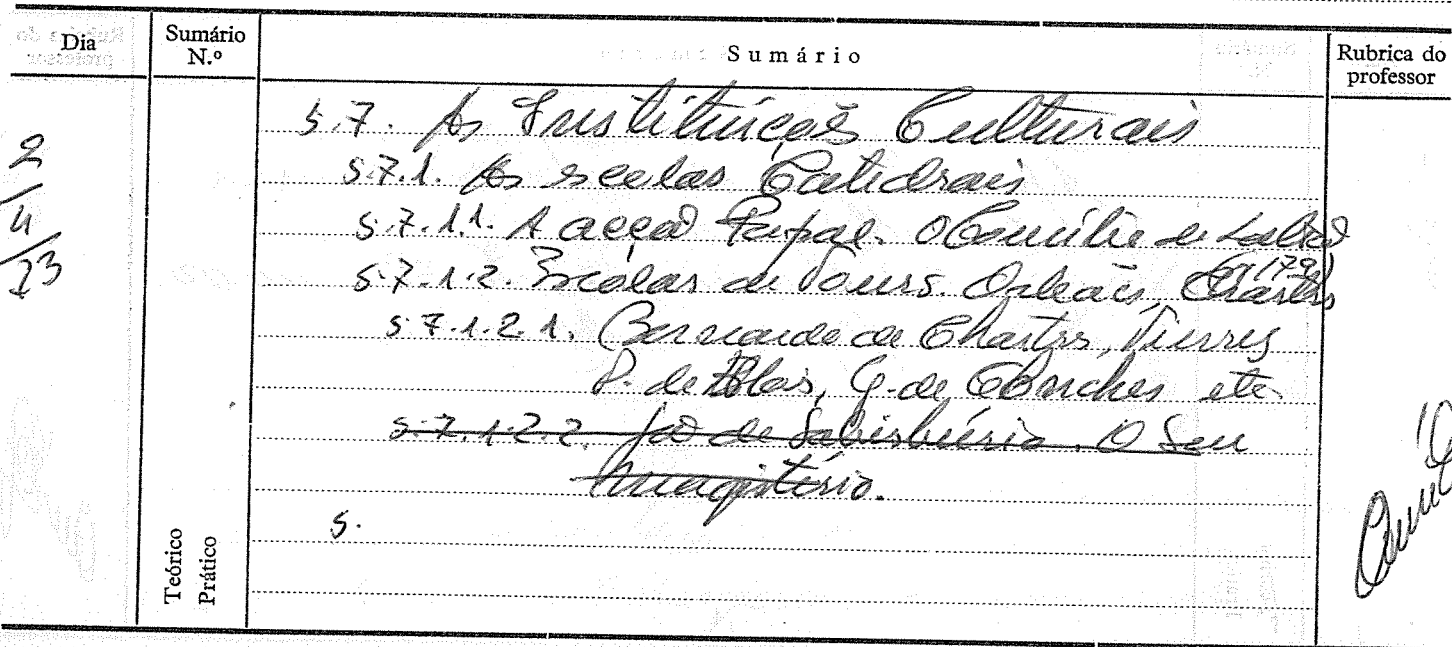 Dia
Sumário N.º
Sumário
Rubrica do professor
2/4/73
5.7. As Instituições Culturais
5.7.1. As escolas Catedrais
5.7.1.1. A acção Papal. O Concílio de Latrão (1179)
5.7.1.2. Escolas de Tours. Orleães, Chartres
5.7.1.2.1. Bernardo de Chartres, Thierry
P. de Blois, G. de Conches etc.
5.7.1.2.2. João de Salisbúria. O Seu
magistério.
5.
Teórico
Prático